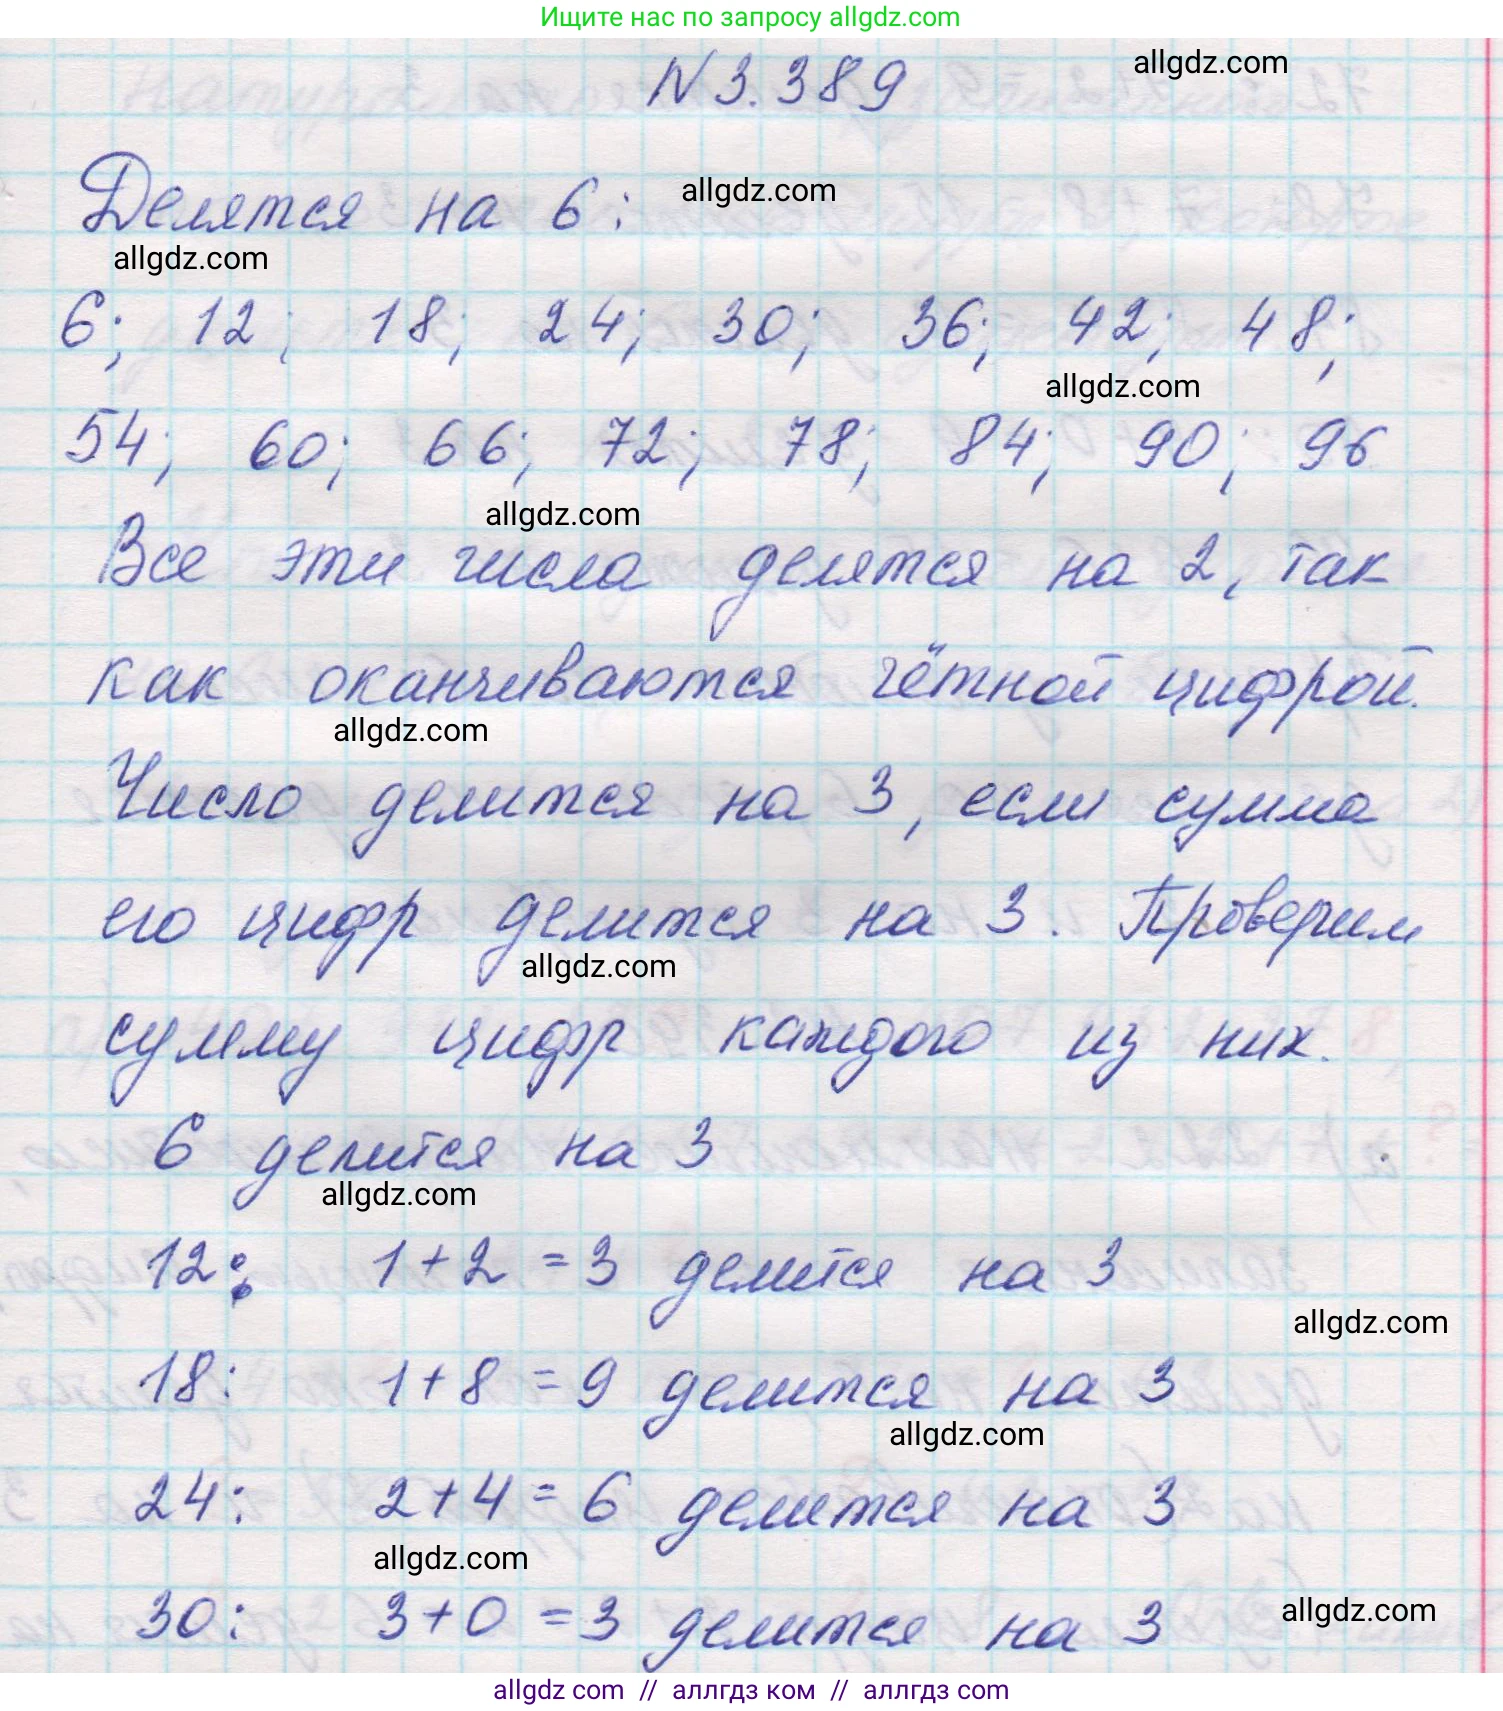 Ищите нас по запросу allgdz.com
N 3.389
allgdz.com
Делятся на 6:
allgdz.com
allgdz.com
6; 12; 18; 24; 30; 36; 42; 48;
allgdz.com
54; 60; 66; 72; 78; 84; 90; 96
allgdz.com
Все эти числа делятся на 2, так
как оканчиваются чётной цифрой.
allgdz.com
Число делится на 3, если сумма
его цифр делится на 3. Проверим
allgdz.com
сумму цифр каждого из них.
6 делится на 3
allgdz.com
12: 1+2 = 3 делится на 3
allgdz.com
18: 1+8 = 9 делится на 3
allgdz.com
24: 2+4 = 6 делится на 3
allgdz.com
30: 3+0 = 3 делится на 3
allgdz.com
allgdz com // аллгдз ком // аллгдз com